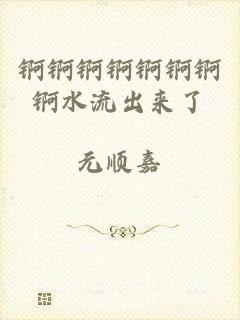 锕锕锕锕锕锕锕
锕水流出来了
元顺嘉